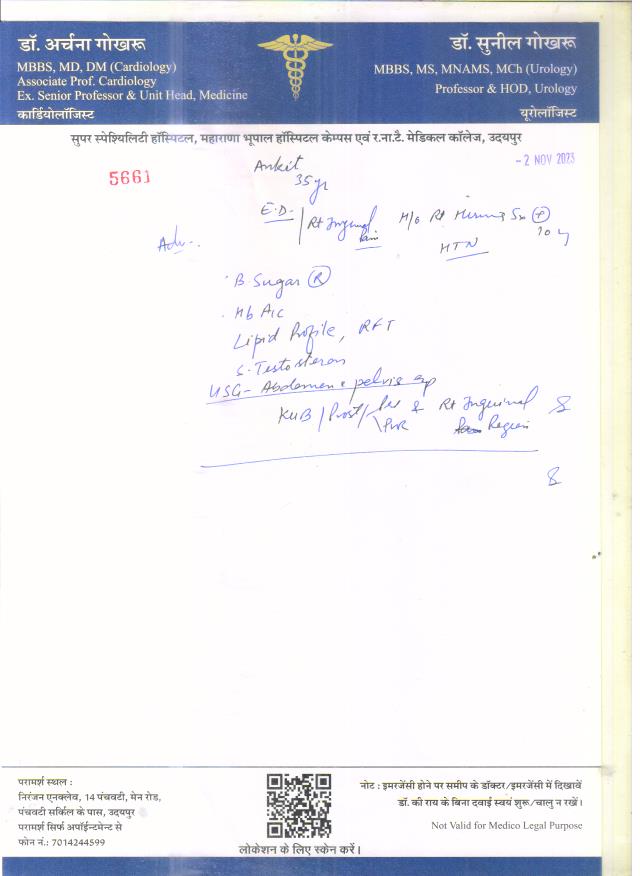 डॉ. अर्चना गोखरू
MBBS, MD, DM (Cardiology)
Associate Prof. Cardiology
Ex. Senior Professor & Unit Head, Medicine
कार्डियोलॉजिस्ट
डॉ. सुनील गोखरू
MBBS, MS, MNAMS, MCh (Urology)
Professor & HOD, Urology
यूरोलॉजिस्ट
सुपर स्पेश्यिलिटी हॉस्पिटल, महाराणा भूपाल हॉस्पिटल केम्पस एवं र.ना.टै. मेडिकल कॉलेज, उदयपुर
5661
- 2 NOV 2023
Ankit
35 yr
E.D. / Rt Inguinal Pain H/o Rt Sx +
HTN
Adv.
B. Sugar (R)
Hb A1c
Lipid Profile, RFT
S. Testosteron
USG - Abdomen & pelvis
KUB / Prost / PVR & Rt Inguinal
Region
परामर्श स्थल :
निरंजन एनक्लेव, 14 पंचवटी, मेन रोड,
पंचवटी सर्किल के पास, उदयपुर
परामर्श सिर्फ अपॉईन्टमेन्ट से
फोन नं.: 7014244599
लोकेशन के लिए स्केन करें।
नोट : इमरजेंसी होने पर समीप के डॉक्टर/इमरजेंसी में दिखावें
डॉ. की राय के बिना दवाई स्वयं शुरू/चालु न रखें।
Not Valid for Medico Legal Purpose